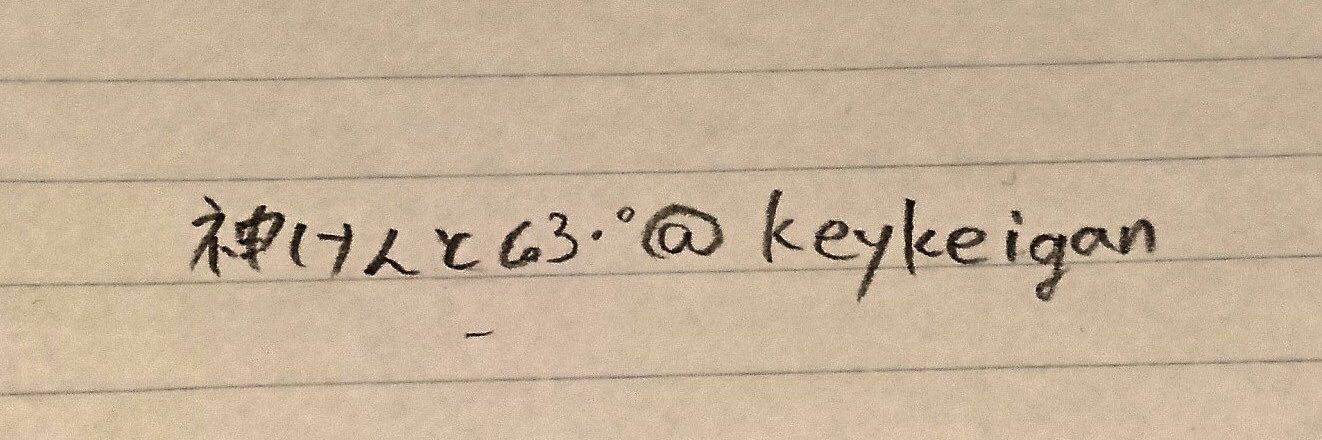 神けんと63.°@ keykeigan